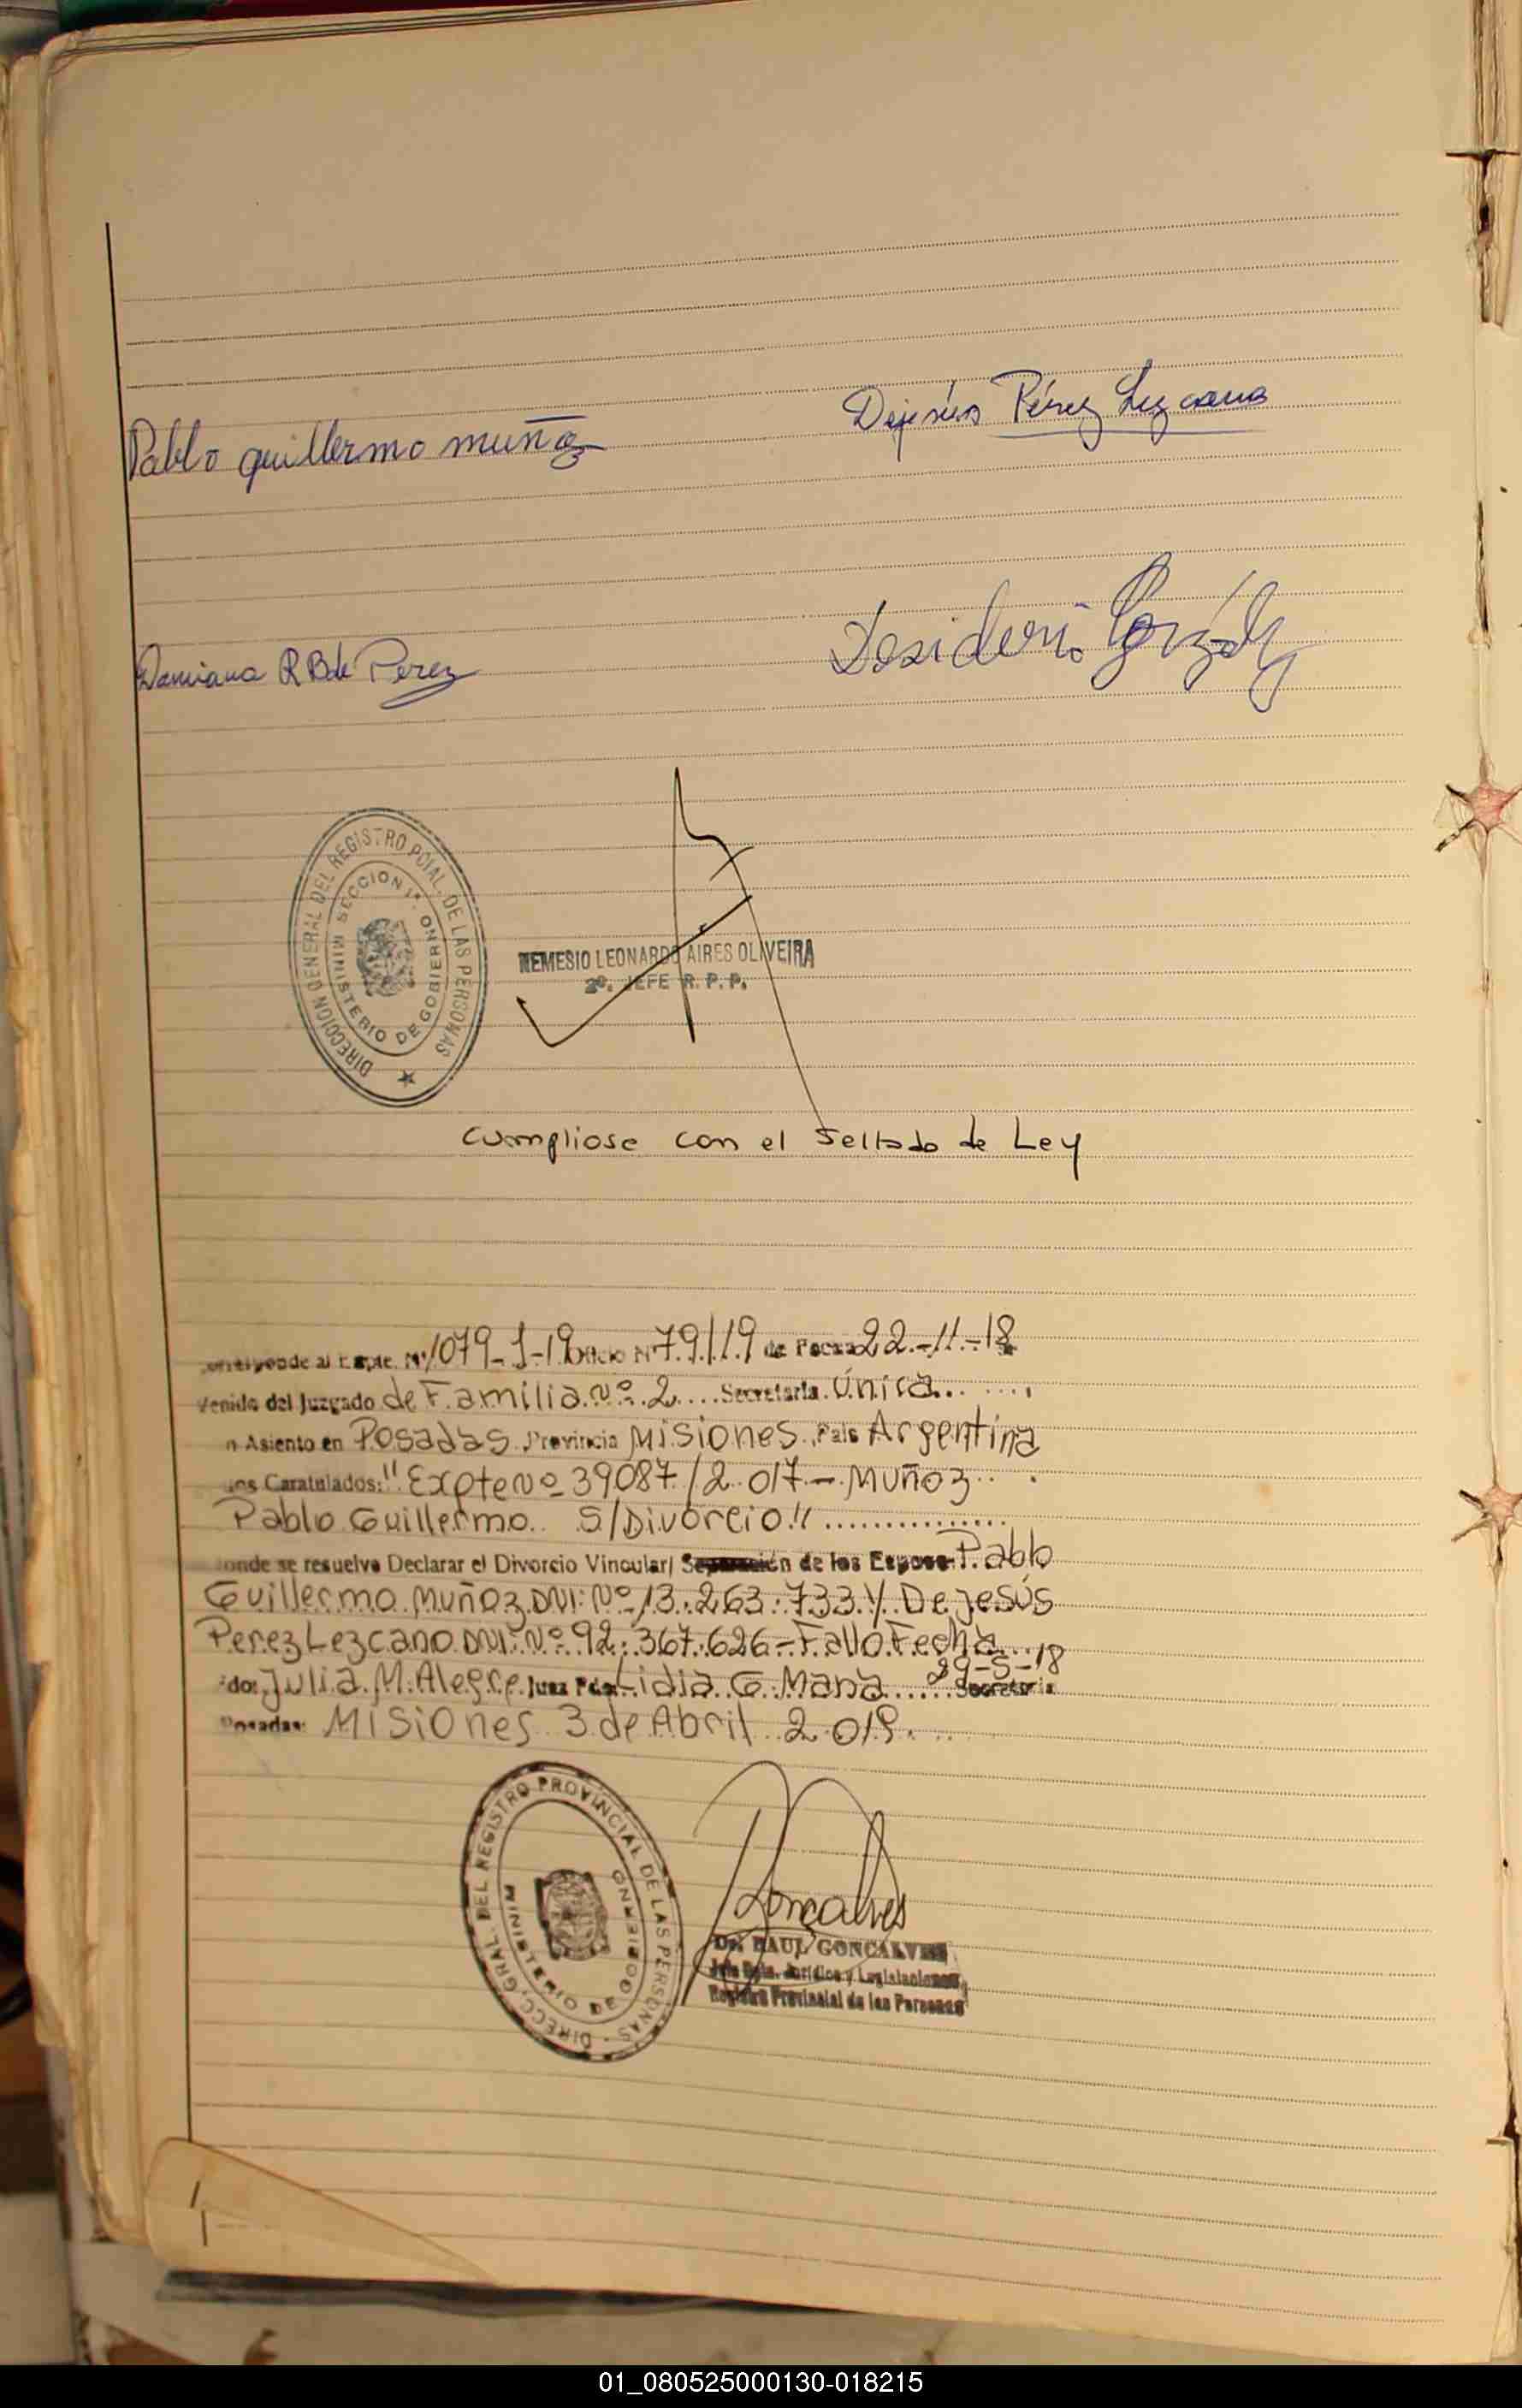 Pablo guillermo muñoz
Dejesús Pérez Lezcano
Damiana R B de Perez
Desiderio
DIRECCION GENERAL DEL REGISTRO PCIAL. DE LAS PERSONAS
SECCION 1ª. MINISTERIO DE GOBIERNO
NEMESIO LEONARDO AIRES OLIVEIRA
2º. JEFE R. P. P.
Cumpliose con el Sellado de Ley
al Expte. Nº 1079-J-19 Oficio Nº 79/19 de Fecha 22-11-18
venido del Juzgado de Familia Nº 2 Secretaría Única
n Asiento en Posadas Provincia Misiones País Argentina
os Caratulados: "Expte Nº 39087/2017 - Muñoz
Pablo Guillermo S/Divorcio"
onde se resuelve Declarar el Divorcio Vincular/ de los Esposos Pablo
Guillermo Muñoz DNI Nº 13.263.733 Y De Jesús
Perez Lezcano DNI Nº 92.367.626 - Fallo Fecha
29-5-18
do: Julia M. Alegre Juez Fdo Lidia G. Mana Secretaria
Posadas: Misiones 3 de Abril 2019.
DIRECC. GRAL. DEL REGISTRO PROVINCIAL DE LAS PERSONAS
MINISTERIO DE GOBIERNO
Goncalves
Dr. RAUL GONCALVES
Jefe Dpto. Jurídico y Legislaciones
Registro Provincial de las Personas
01_080525000130-018215